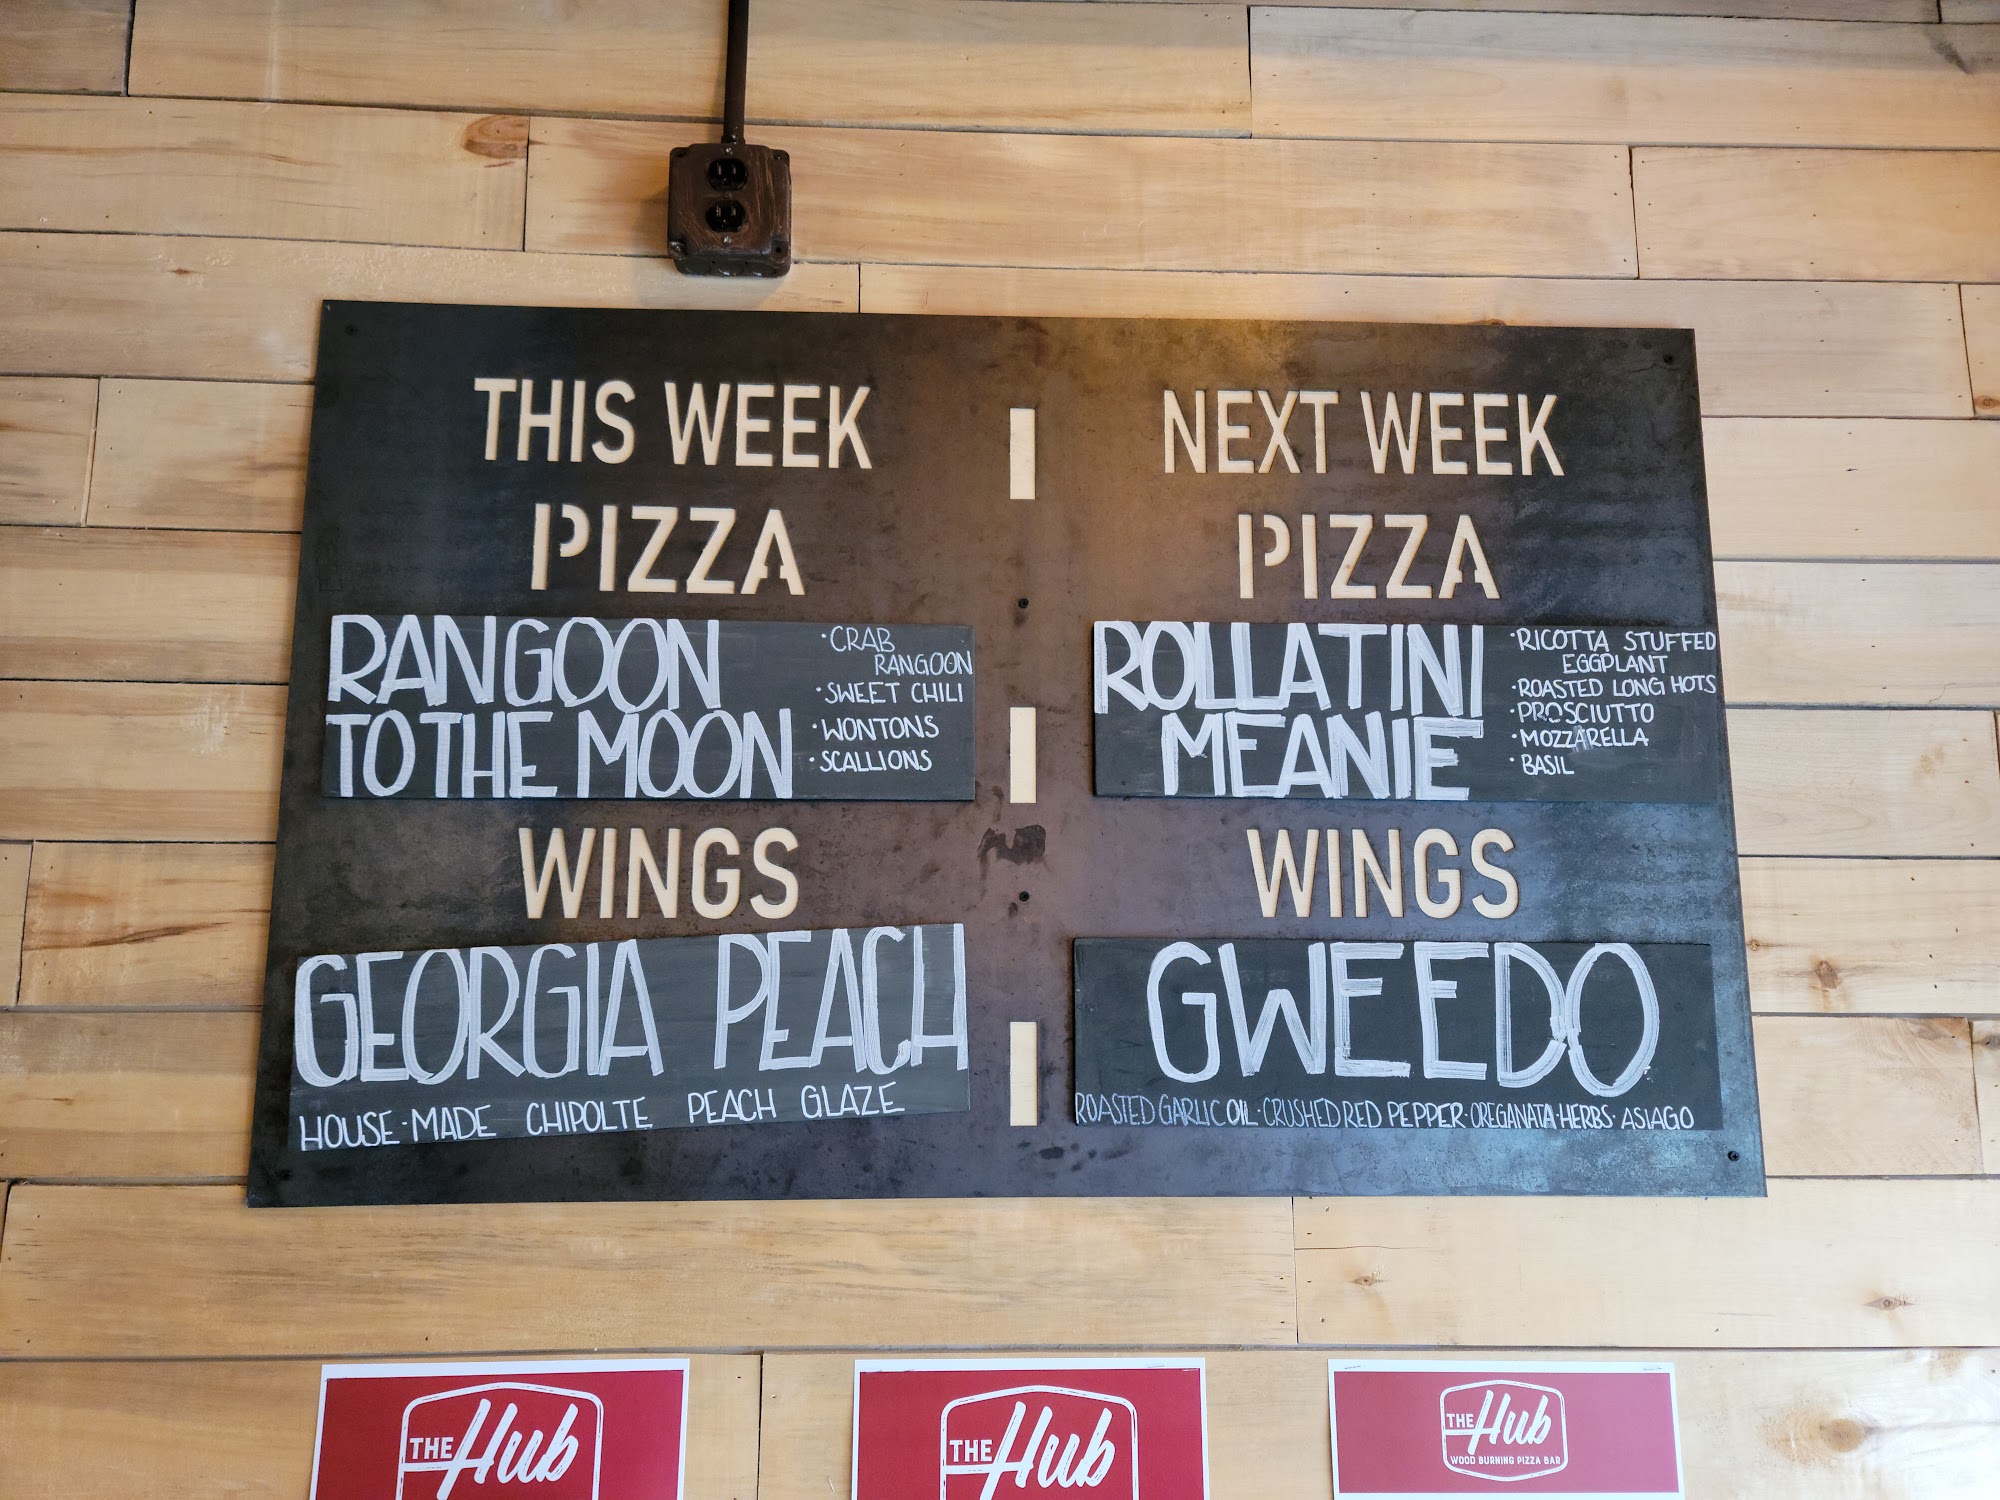 THIS WEEK
PIZZA
RANGOON
TO THE MOON
·CRAB
RANGOON
·SWEET CHILI
·WONTONS
·SCALLIONS
WINGS
GEORGIA PEACH
HOUSE·MADE CHIPOLTE PEACH GLAZE
NEXT WEEK
PIZZA
ROLLATINI
MEANIE
·RICOTTA STUFFED
EGGPLANT
·ROASTED LONG HOTS
·PROSCIUTTO
·MOZZARELLA
·BASIL
WINGS
GWEEDO
ROASTED GARLIC OIL·CRUSHED RED PEPPER·OREGANATA HERBS·ASIAGO
THE Hub
THE Hub
THE Hub
WOOD BURNING PIZZA BAR